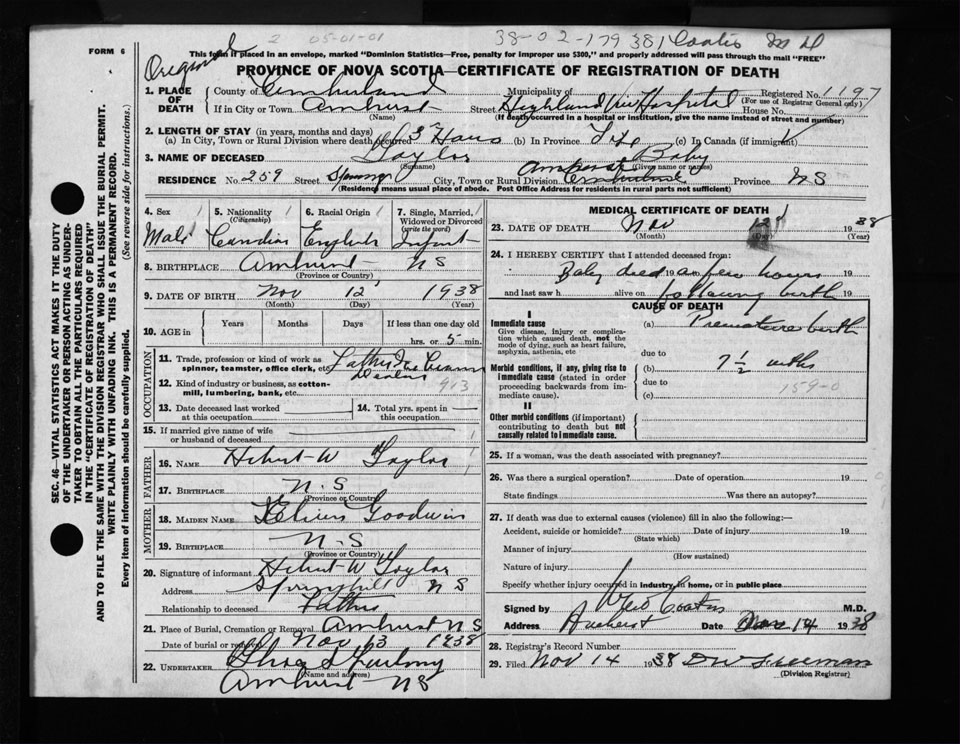 FORM 6
2 05-01-01
38-02-179 381 Coates M D
This form if placed in an envelope, marked "Dominion Statistics—Free, penalty for improper use $300," and properly addressed will pass through the mail "FREE"
PROVINCE OF NOVA SCOTIA—CERTIFICATE OF REGISTRATION OF DEATH
1. PLACE OF DEATH
County of Cumberland Municipality of Registered No. 1197
(For use of Registrar General only)
If in City or Town Amherst Street Highland View Hospital House No.
(Name) (If death occurred in a hospital or institution, give the name instead of street and number)
2. LENGTH OF STAY (in years, months and days)
(a) In City, Town or Rural Division where death occurred 3 Hours (b) In Province Life (c) In Canada (if immigrant)
3. NAME OF DECEASED Taylor Baby
(Surname) (Given name or names)
RESIDENCE No. 259 Street City, Town or Rural Division Amherst Cumberland Province N S
(Residence means usual place of abode. Post Office Address for residents in rural parts not sufficient)
4. Sex Male
5. Nationality (Citizenship) Canadian
6. Racial Origin English
7. Single, Married, Widowed or Divorced (write the word) Infant
8. BIRTHPLACE Amherst N S
(Province or Country)
9. DATE OF BIRTH Nov 12 1938
(Month) (Day) (Year)
10. AGE in Years Months Days If less than one day old
hrs. or 5 min.
OCCUPATION
11. Trade, profession or kind of work as spinner, teamster, office clerk, etc. Father
12. Kind of industry or business, as cotton-mill, lumbering, bank, etc. 913
13. Date deceased last worked at this occupation
14. Total yrs. spent in this occupation
15. If married give name of wife or husband of deceased
FATHER
16. NAME Hibert W Taylor
17. BIRTHPLACE N.S
(Province or Country)
MOTHER
18. MAIDEN NAME Goodwin
19. BIRTHPLACE N.S
(Province or Country)
20. Signature of informant Hibert W Taylor
Address Springhill N S
Relationship to deceased Father
21. Place of Burial, Cremation or Removal Amherst N S
Date of burial or removal Nov 13 1938
22. UNDERTAKER Furlong
(Name and address)
Amherst N S
MEDICAL CERTIFICATE OF DEATH
23. DATE OF DEATH Nov 12 1938
(Month) (Day) (Year)
24. I HEREBY CERTIFY that I attended deceased from:
Baby died 19 a few hours 19
and last saw h alive on following birth 19
CAUSE OF DEATH
I
Immediate cause
Give disease, injury or complication which caused death, not the mode of dying, such as heart failure, asphyxia, asthenia, etc
(a) Premature birth
due to
Morbid conditions, if any, giving rise to immediate cause (stated in order proceeding backwards from immediate cause).
(b) 7 ½ mths
due to
(c) 159-0
II
Other morbid conditions (if important) contributing to death but not causally related to immediate cause.
25. If a woman, was the death associated with pregnancy?
26. Was there a surgical operation? Date of operation 19
State findings Was there an autopsy?
27. If death was due to external causes (violence) fill in also the following:—
Accident, suicide or homicide? Date of injury 19
(State which)
Manner of injury
(How sustained)
Nature of injury
Specify whether injury occurred in industry, in home, or in public place
Signed by Coates M.D.
Address Amherst Date Nov 14 1938
28. Registrar's Record Number
29. Filed Nov 14 1938 D W Freeman
(Division Registrar)
SEC. 46—VITAL STATISTICS ACT MAKES IT THE DUTY
OF THE UNDERTAKER OR PERSON ACTING AS UNDER-
TAKER TO OBTAIN ALL THE PARTICULARS REQUIRED
IN THE "CERTIFICATE OF REGISTRATION OF DEATH"
AND TO FILE THE SAME WITH THE DIVISION REGISTRAR WHO SHALL ISSUE THE BURIAL PERMIT.
WRITE PLAINLY WITH UNFADING INK. THIS IS A PERMANENT RECORD.
Every item of information should be carefully supplied. (See reverse side for instructions.)